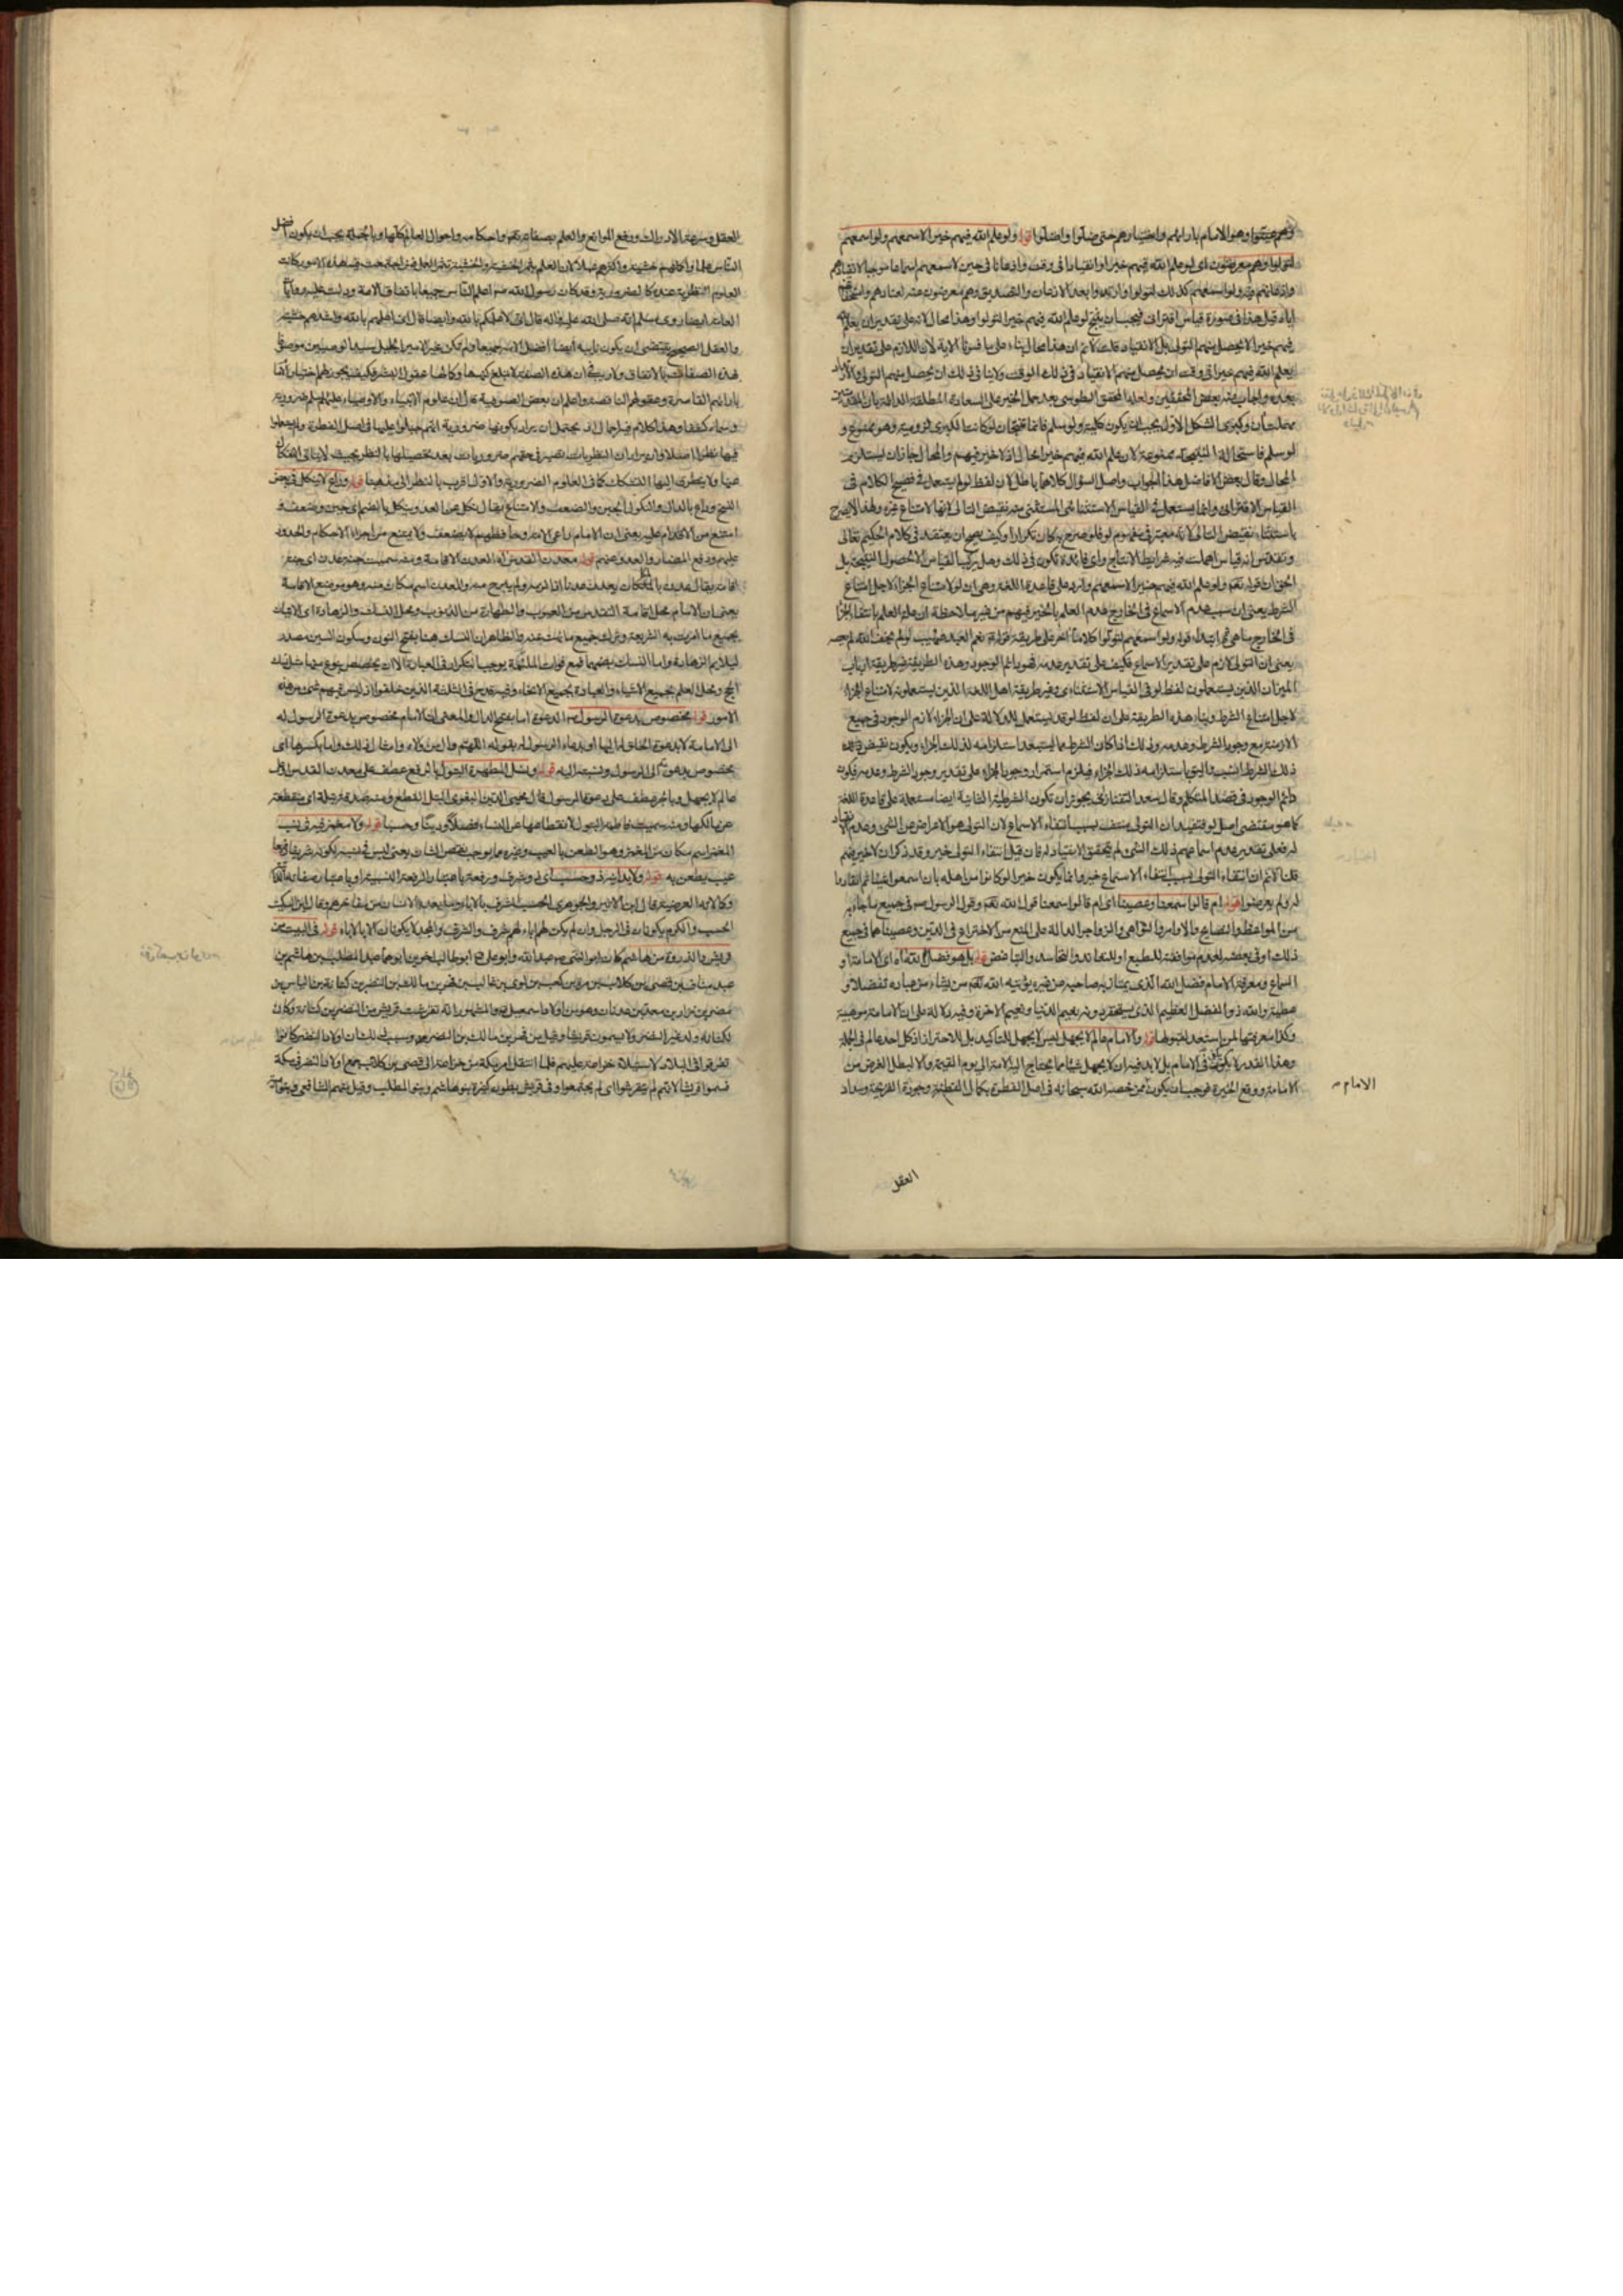 وهم عينوا وهو الامام بارائهم واختيارهم حتى ضلوا واضلوا قوله ولو علم الله فيهم خيرا لاسمعهم ولو اسمعهم
لتولوا وهم معرضون اى لو علم الله فيهم خيرا وانقيادا فى وقت واذعانا فى حين لاسمعهم اسماعا موجبا لانقيادهم
ولو اسمعهم كذلك لتولوا وارتدوا بعد الاذعان والتصديق وهم معرضون عنه لعنادهم
قيل هذا فى صورة قياس اقترانى فيجب ان ينتج لو علم الله فيهم خيرا لتولوا وهذا محال لانه على تقدير ان يعلم
فيهم خيرا لا يحصل منهم التولى بل الانقياد قلت لا نم ان هذا محال بناء على ما فسرنا الاية لان اللازم على تقدير ان
يعلم الله فيهم خيرا فى وقت ان يحصل منهم الانقياد فى ذلك الوقت ولا ينافى ذلك ان يحصل منهم التولى
بعده واجاب عنه بعض المحققين ولعله المحقق الطوسى بعد حمل الخير على السعادة المطلقة
مهملتان وكبرى الشكل الاول يجب ان يكون كلية ولو سلم فانما تنتجان لو كانت الكبرى لزومية وهو ممنوع و
لو سلم فاستحالة النتيجة ممنوعة لان علم الله فيهم خيرا محال اذ لا خير فيهم والمحال جاز ان يستلزم
المحال وقال بعض الافاضل هذا الجواب واصل السؤال كلاهما باطل لان لفظ لو لم يستعمل فى فصيح الكلام فى
القياس الاقترانى وانما يستعمل فى القياس الاستثنائى المستثنى منه نقيض التالى لانها لامتناع غيره ولهذا لا يصرح
باستثناء نقيض التالى لانه معتبر فى مفهوم لو فلو صرح به كان تكرارا وكيف يصح ان يعتقد فى كلام الحكيم تعالى
وتقدس انه قياس اهملت فيه شرايط الانتاج واى فائدة تكون فى ذلك وهل يركب القياس الا لحصول النتيجة بل
الحق ان قوله تعالى ولو علم الله فيهم خيرا لاسمعهم وارد على قاعدة اللغة وهى ان لو لامتناع الجزاء لاجل امتناع
الشرط يعنى ان سبب عدم الاسماع فى الخارج عدم العلم بالخير فيهم من غير ملاحظة ان علة العلم بانتفاء الجزا
فى الخارج ما هى ثم ابتداء قوله ولو اسمعهم لتولوا كلاما اخر على طريقة قوله نعم العبد صهيب لو لم يخف الله لم يعصه
يعنى ان التولى لازم على تقدير الاسماع فكيف على تقدير عدمه فهو دائم الوجود وهذه الطريقة غير طريقة ارباب
الميزان الذين يستعملون لفظ لو فى القياس الاستثنائى وغير طريقة اهل اللغة الذين يستعملونه لامتناع الجزاء
لاجل امتناع الشرط وبناء هذه الطريقة على ان لفظ لو قد يستعمل للدلالة على ان الجزاء لازم الوجود فى جميع
الازمنة مع وجود الشرط وعدمه وذلك اذا كان الشرط مما يستبعد استلزامه لذلك الجزاء ويكون نقيض
ذلك الشرط انسب واليق باستلزامه ذلك الجزاء فيلزم استمرار وجود الجزاء على تقدير وجود الشرط وعدمه فيكون
دائم الوجود فى قصد المتكلم وقال سعد التفتازانى يجوز ان تكون الشرطية الثانية ايضا مستعملة على قاعدة اللغة
كما هو مقتضى اصل لو فتفيد ان التولى منتف بسبب انتفاء الاسماع لان التولى هو الاعراض عن الشئ وعدم الانقياد
له فعلى تقدير عدم اسماعهم ذلك الشئ لم يتحقق الانقياد له فان قيل انتفاء التولى خير وقد ذكر ان لا خير فيهم
قلنا لا نم ان انتفاء التولى بسبب انتفاء الاسماع خير وانما يكون خيرا لو كانوا من اهله بان اسمعوا شيئا ثم انقادوا
له ولم يعرضوا قوله ام قالوا سمعنا وعصينا اى ام قالوا سمعنا قول الله تعالى وقول الرسول ص فى جميع ما جاء به
من المواعظ والنصايح والاوامر والنواهى والزواجر الدالة على المنع من الاختراع فى الدين وعصيناهما فى جميع
ذلك او فى بعضه لعدم موافقته للطبع او للتعاند والتحاسد والتباغض قوله بل هو فضل الله اى الامامة او
السماع ومعرفة الامام فضل الله الذى يمتاز به صاحبه عن غيره يؤتيه الله تعالى من يشاء من عباده تفضلا و
عطية والله ذو الفضل العظيم الذى يستحقر دونه نعيم الدنيا ونعيم الاخرة وفيه دلالة على ان الامامة موهبية
وكذا معرفتها لمن استعد لقبولها قوله والامام عالم لا يجهل ليس لا يجهل للتاكيد بل للاحتراز اذ كل احد عالم فى الجملة
وهذا القدر لا يكفى فى الامام بل لا بد فيه ان لا يجهل شيئا مما يحتاج اليه الامة الى يوم القيمة والا لبطل الغرض من
الامامة ووقع الحيرة فوجب ان يكون ممن خصه الله سبحانه فى اصل الفطرة بكمال الفطنة وجودة القريحة وسداد
الامام
العقل
العقل وسرعة الادراك ورفع الموانع والعلم بصفاته تعالى واحكامه واحوال العالم كلها وبالجملة يجب ان يكون افضل
الناس علما واكملهم خشية واكثرهم عملا لان العلم يثمر الخشية والخشية تثمر العمل
العلوم النظرية عنده كالضرورية وقد كان رسول الله ص اعلم الناس جميعا باتفاق الامة ودلت عليه روايات
العامة ايضا روى مسلم انه صلى الله عليه واله قال انى لاعلمكم بالله وايضا قال انى اعلمهم بالله واشدهم خشية
والعقل الصحيح يقتضى ان يكون نايبه ايضا افضل الامة جميعا ولم يكن غير الامير الجليل سيد الوصيين موصوفا
بهذه الصفات بالاتفاق ولا ريب فى ان هذه الصفة لا تبلغ كنهها وكمالها عقول البشر فكيف يجوز لهم اختيار
بارائهم القاصرة وعقولهم الناقصة واعلم ان بعض الصوفية قال ان علوم الانبياء والاوصياء عليهم السلم ضرورية
وسماه كشفا وهذا كلام فيه اجمال اذ يحتمل ان يراد بكونها ضرورية انهم جبلوا عليها فى اصل الفطرة ولم يستعملوا
فيها نظرا اصلا وان يراد ان النظريات تصير فى حقهم ضروريات بعد تحصيلها بالنظر بحيث لا يتاتى انفكاك
عنها ولا يتطرق اليها التشكك كما فى العلوم الضرورية والاول قريب بالنظر الى مذهبنا قوله وراع لا ينكل فى بعض
النسخ وداع بالدال والنكول الجبن والضعف والامتناع يقال نكل عن العدو ينكل بالضم اى جبن وضعف و
امتنع من الاقدام عليه يعنى ان الامام راعى الامة وحافظهم لا يضعف ولا يمتنع من اجراء الاحكام والحدود
عليهم ودفع المضار والعدو عنهم قوله معدن القدس اه العدن الاقامة ومنه سميت جنة عدن اى جنة
اقامة يقال عدن بالمكان يعدن عدنا اذا لزمه ولم يبرح منه والمعدن اسم مكان منه وهو موضع الاقامة
يعنى ان الامام محل اقامة التقدس من العيوب والطهارة من الذنوب ومحل النسك والزهادة اى الاتيان
بجميع ما امرت به الشريعة وترك جميع ما نهت عنه والظاهر ان النسك هنا بفتح النون وسكون السين مصدر
ليلايم الزهادة واما النسك بضمهما فمع فوات الملائمة يوجب التكرار فى العبادة الا ان يخصص بنوع منها مثل نسك
الحج ومحل العلم بجميع الاشياء والعبادة بجميع الانحاء
الامور قوله مخصوص بدعوة الرسول ص الدعوة اما بفتح الدال والمعنى ان الامام مخصوص بدعوة الرسول له
الى الامامة لا بدعوة الخلق له اليها او بدعاء الرسول له بقوله اللهم وال من والاه وامثال ذلك واما بكسرها اى
مخصوص بدعوته الى الرسول ونسبته اليه قوله ونسل المطهرة البتول بالرفع عطف على معدن القدس او على
عالم لا يجهل وبالجر عطف على دعوة الرسول قال محيى الدين البغوى البتل القطع ومنه صدقة بتلة اى منقطعة
عن مالكها ومنه سميت فاطمة البتول لانقطاعها عن النساء فضلا ودينا وحسبا قوله ولا مغمز فيه فى نسب
المغمز اسم مكان من الغمز وهو الطعن بالعيب وغيره مما يوجب نقص الشان يعنى ليس فى نسبه
عيب يطعن به قوله ولا يدانيه ذو حسب اى ذو شرف ورفعة باعتبار الرفعة النسبية او باعتبار صفاته الذاتية
وكمالاته العرضية قال ابن الاثير والجوهرى الحسب الشرف بالاباء وما يعده الانسان من مفاخرهم وقال ابن السكيت
الحسب والكرم يكونان فى الرجل وان لم يكن لهم اباء لهم شرف والشرف والمجد لا يكونان الا بالاباء قوله فى البيت من
قريش والذروة من هاشم كان ابو النبى ص عبد الله وابو على ع ابو طالب اخوين ابوهما عبد المطلب بن هاشم بن
عبد مناف بن قصى بن كلاب بن مرة بن كعب بن لوى بن غالب بن فهر بن مالك بن النضر بن كنانة بن
مضر بن نزار بن معد بن عدنان وهو من اولاد اسمعيل ع والمشهور انه تقرشت قريش من النضر بن كنانة وكان
لكنانة ولد غير النضر ولا يسمون قريشا وقيل من فهر بن مالك بن النضر وسبب ذلك ان اولاد النضر كانوا
تفرقوا فى البلاد لاستيلاء خزاعة عليهم فلما انتقل امر مكة من خزاعة الى قصى بن كلاب جمع اولاد النضر فى مكة
فسموا قريشا لانهم لم يتقرشوا اى لم يجتمعوا وفى قريش بطون كثيرة بنو هاشم وبنو المطلب وقيل منهم الشافعى